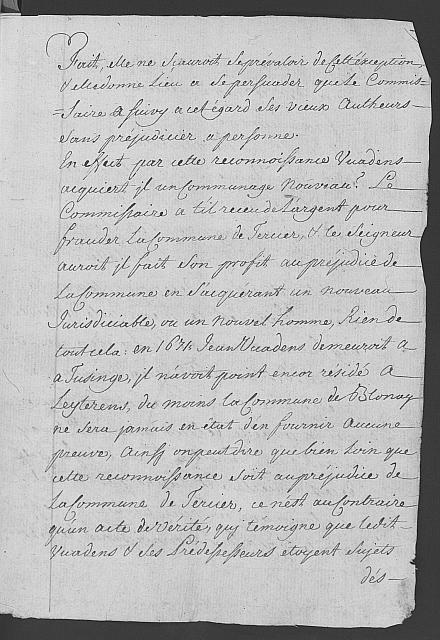 Fait, Elle ne sauroit Se prévaloir de Cette exception,
& Elle donne Lieu a Se persuader que Le Commis=
=saire a Suivy a cet égard Ses vieux Autheurs
Sans préjudicier a personne.
En effect par cette reconnoissance Vuadens
acquiert jl un Communage nouveau? Le
Commissaire a til receu de L'argent pour
frauder La Commune de Tercier, & le Seigneur
auroit jl fait Son profit au préjudice de
La Commune en S'acquérant un nouveau
Jurisdiciable, ou un nouvel homme, Rien de
tout cela: en 1674 Jean Vuadens demeuroit a
a Tusinge, jl n'avoit point encor résidé A
Leyterens, du moins la Commune de Blonay
ne Sera jamais en état d'en fournir aucune
preuve, Ainsj on peut dire que bien loin que
cette reconnoissance Soit au préjudice de
La Commune de Tercier, ce n'est au Contraire
qu'un acte de Vérité, quj témoigne que ledit
Vuadens & Ses Prédesseseurs étoyent Sujets
dés-